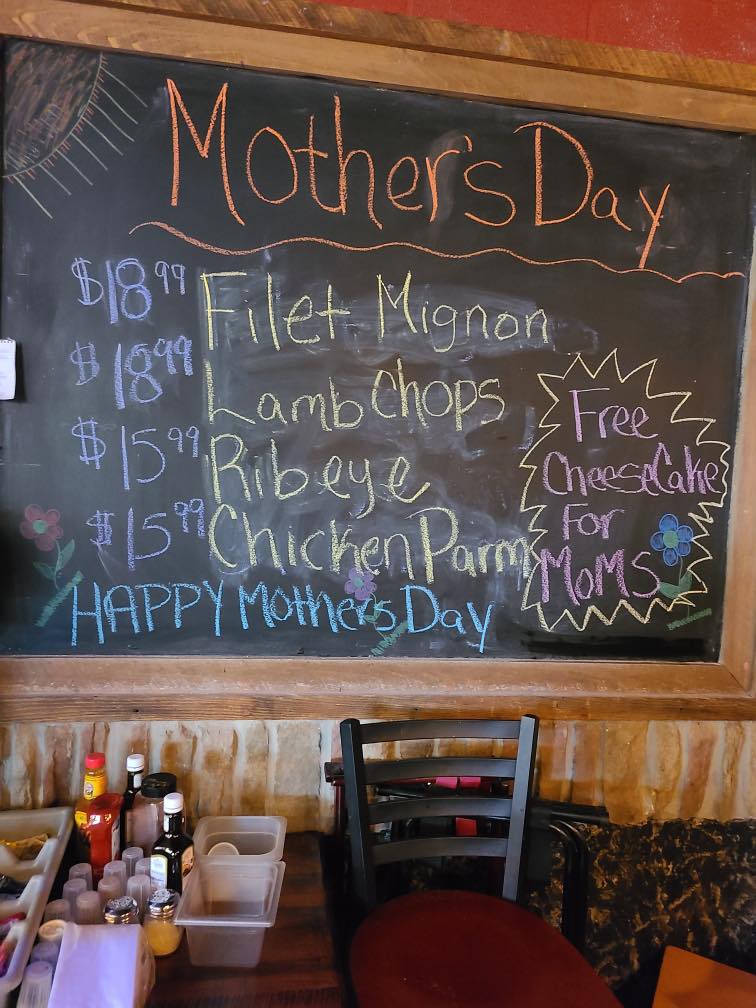 Mother's Day
$18.99 Filet Mignon
$18.99 Lamb Chops
$15.99 Ribeye
$15.99 Chicken Parm
Free
CheeseCake
For
MoMS
HAPPY Mothers Day